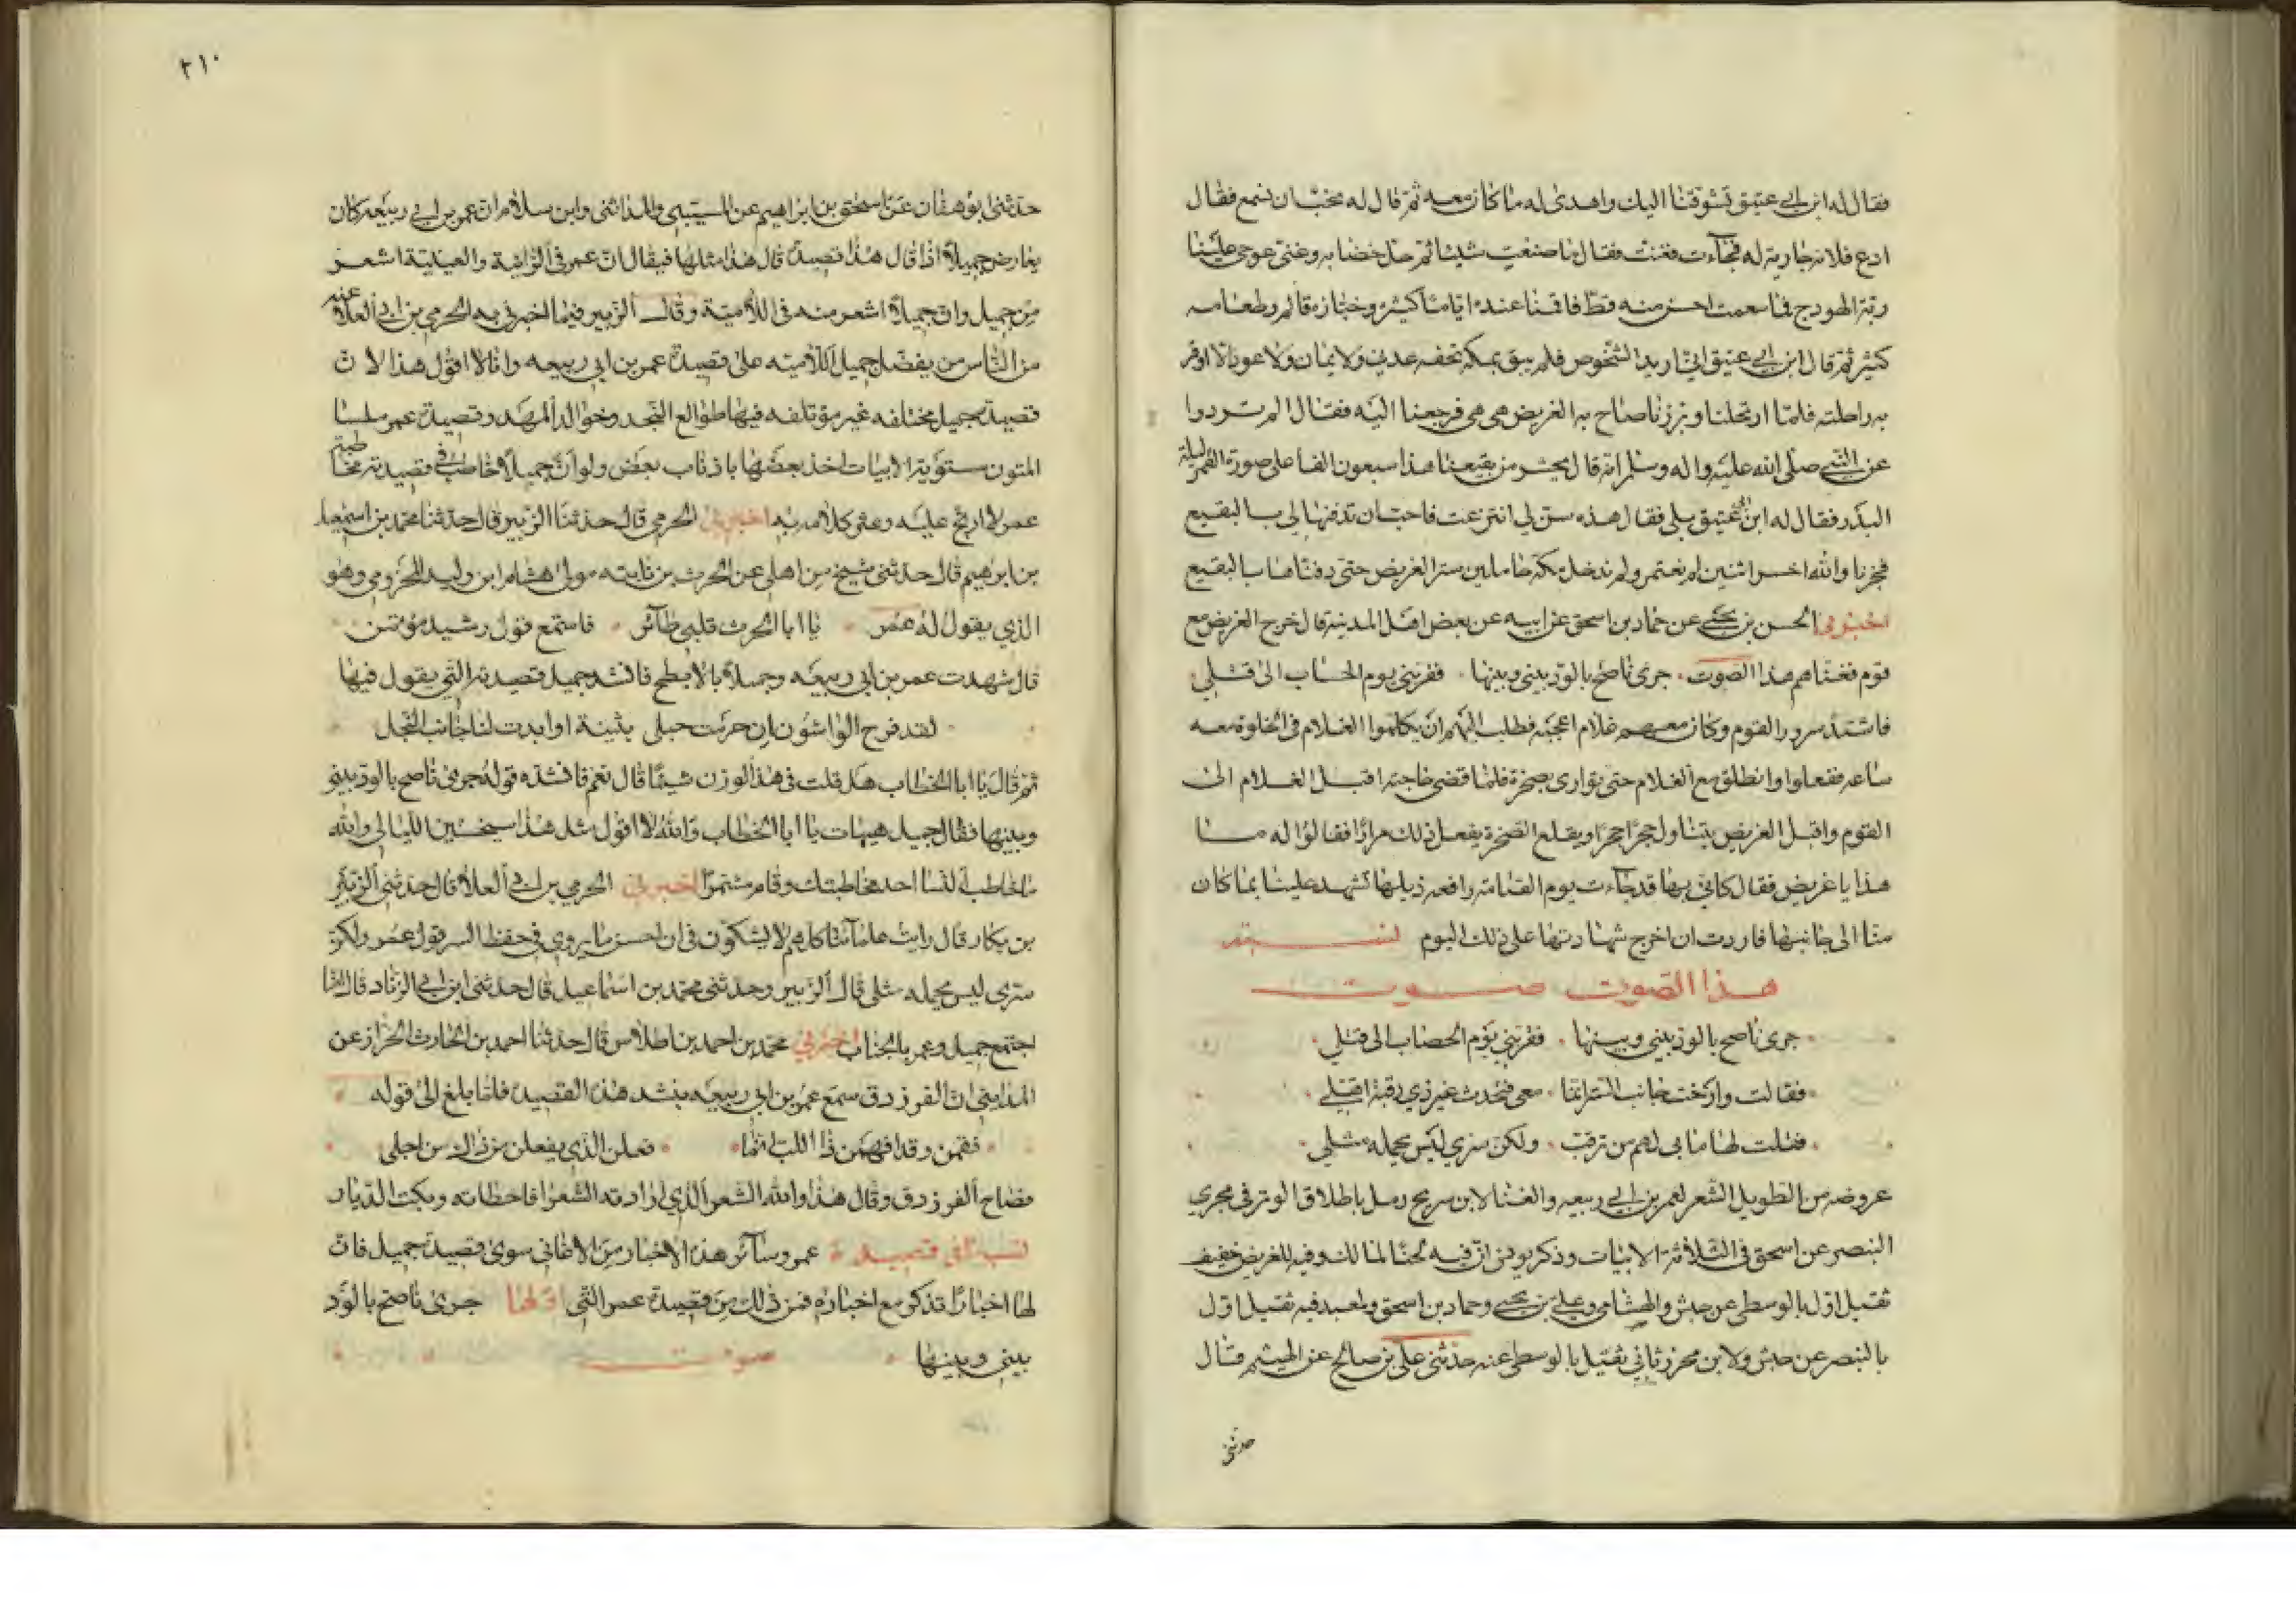 فقال له ابن ابي عتيق تشوقنا اليك واهدى له ما كان معه ثم قال له نحب ان نسمع فقال
ادع فلانه جارية له فجاءت فغنت فقال ما صنعت شيئا ثم حل خضابه وغنى عوجي علينا
ربة الهودج فما سمعت احسن منه قط فاقمنا عنده اياما كثيرة وخبازه قائم وطعامه
كثير ثم قال ابن ابي عتيق اني اريد الشخوص فلم يبق بمكه تحفه عدني ولا يمان ولا عود الا اوقر
به راحلته فلما ارتحلنا وبرزنا صاح به الغريض هي هي فرجعنا اليه فقال الم تردوا
عن النبي صلى الله عليه واله وسلم انه قال يحشر من بقيعنا هذا سبعون الفا على صورة القمر ليلة
البدر فقال له ابن ابي عتيق بلى فقال هذه سن لي انتزعت فاحب ان تدفنها لي بالبقيع
فخرجنا والله اخسر اثنين لم نعتمر ولم ندخل مكه حاملين سن الغريض حتى دفناها بالبقيع
اخبرني الحسن بن يحيى عن حماد بن اسحق عن ابيه عن بعض اهل المدينة قال خرج الغريض مع
قوم فغناهم هذا الصوت جرى ناصح بالود بيني وبينها فقربني يوم الحساب الى قتلي
فاشتد سرور القوم وكان معهم غلام اعجبه فطلب اليهم ان يكلموا الغلام في الخلوة معه
ساعه ففعلوا وانطلق مع الغلام حتى توارى بصخرة فلما قضى حاجته اقبل الغلام الى
القوم واقبل الغريض يتناول حجرا حجرا ويقلع الصخرة يفعل ذلك مرارا فقالوا له ما
هذا يا غريض فقال كاني بها قد جاءت يوم القيامة رافعه ذيلها تشهد علينا بما كان
منا الى جانبها فاردت ان اخرج شهادتها على ذلك اليوم نسبة
هذا الصوت صوت
جرى ناصح بالود بيني وبينها فقربني يوم الحصاب الى قتلي
فقالت وارخت جانب الستر انما معي فتحدث غير ذي رقبة اهلي
فقلت لها ما بي لهم من ترقب ولكن سري ليس يحمله مثلي
عروضه من الطويل الشعر لعمر بن ابي ربيعه والغنا لابن سريج رمل باطلاق الوتر في مجرى
البنصر عن اسحق في الثلاثة الابيات وذكر يونس ان فيه لحنا لمالك وفيه للغريض خفيف
ثقيل اول بالوسطى عن حبش والهشامي وعلي بن يحيى وحماد بن اسحق ولمعبد فيه ثقيل اول
بالبنصر عن حبش ولابن محرز ثاني ثقيل بالوسطى عنه حدثني علي بن صالح عن الهيثم قال
حدثني
٢١٠
حدثني ابو هفان عن اسحق بن ابراهيم عن المسيبي والمدائني وابن سلام ان عمر بن ابي ربيعه كان
يعارض جميلا اذا قال هذا قصيدة قال هذا مثلها فيقال ان عمر في الرائية والعينية اشعر
من جميل وان جميلا اشعر منه في اللامية وقال الزبير فيما اخبرني به الحرمي بن ابي العلا عنه
من الناس من يفضل جميل اللامية على قصيدة عمر بن ابي ربيعه وانا لا اقول هذا لان
قصيدة جميل مختلفه غير مؤتلفه فيها طوالع النجد وخوالد المهد وقصيدة عمر ملسا
المتون مستوية الابيات اخذ بعضها باذناب بعض ولو ان جميلا خاطب في قصيدته مخاطبة
عمر لارتج عليه وعثر كلامه به اخبرني الحرمي قال حدثنا الزبير قال حدثنا محمد بن اسمعيل
بن ابرهيم قال حدثني شيخ من اهلي عن الحرث بن نابته مولى هشام ابن وليد المخزومي وهو
الذي يقول له عمر يا ابا الحرث قلبي طائر فاستمع قول رشيد مؤتمن
قال شهدت عمر بن ابي ربيعه وجميلا بالابطح فانشد جميل قصيدته التي يقول فيها
لقد فرح الواشون ان حرمت حبلى بثينة او ابدت لنا جانب البخل
ثم قال يا ابا الخطاب هل قلت في هذا الوزن شيئا قال نعم فانشده قوله جرى ناصح بالود بيني
وبينها فقال جميل هيهات يا ابا الخطاب والله لا اقول مثل هذا سجيس الليالي والله
ما خاطب النسا احد مخاطبتك وقام مشتمرا اخبرني الحرمي بن ابي العلا قال حدثني الزبير
بن بكار قال رايت علمائنا كلهم لا يشكون في ان احسن ما يروى في حفظ السر قول عمر ولكن
سري ليس يحمله مثلي قال الزبير وحدثني محمد بن اسماعيل قال حدثني ابن ابي الزناد قال انما
اجتمع جميل وعمر بالجناب اخبرني محمد بن احمد بن اطلاس قال حدثنا احمد بن الحارث الخراز عن
المدايني ان الفرزدق سمع عمر بن ابي ربيعه ينشد هذه القصيدة فلما بلغ الى قوله
فقمن وقد افهمن ذا اللب انما فعلن الذي يفعلن من ذاك من اجلي
فصاح الفرزدق وقال هذا والله الشعر الذي ارادته الشعرا فاخطاته وبكت الديار
نسبة ما في قصيدة عمر وسائر هذه الاخبار من الاغاني سوى قصيدة جميل فان
لها اخبارا تذكر مع اخباره فمن ذلك من قصيدة عمر التي اولها جرى ناصح بالود
بيني وبينها صوت